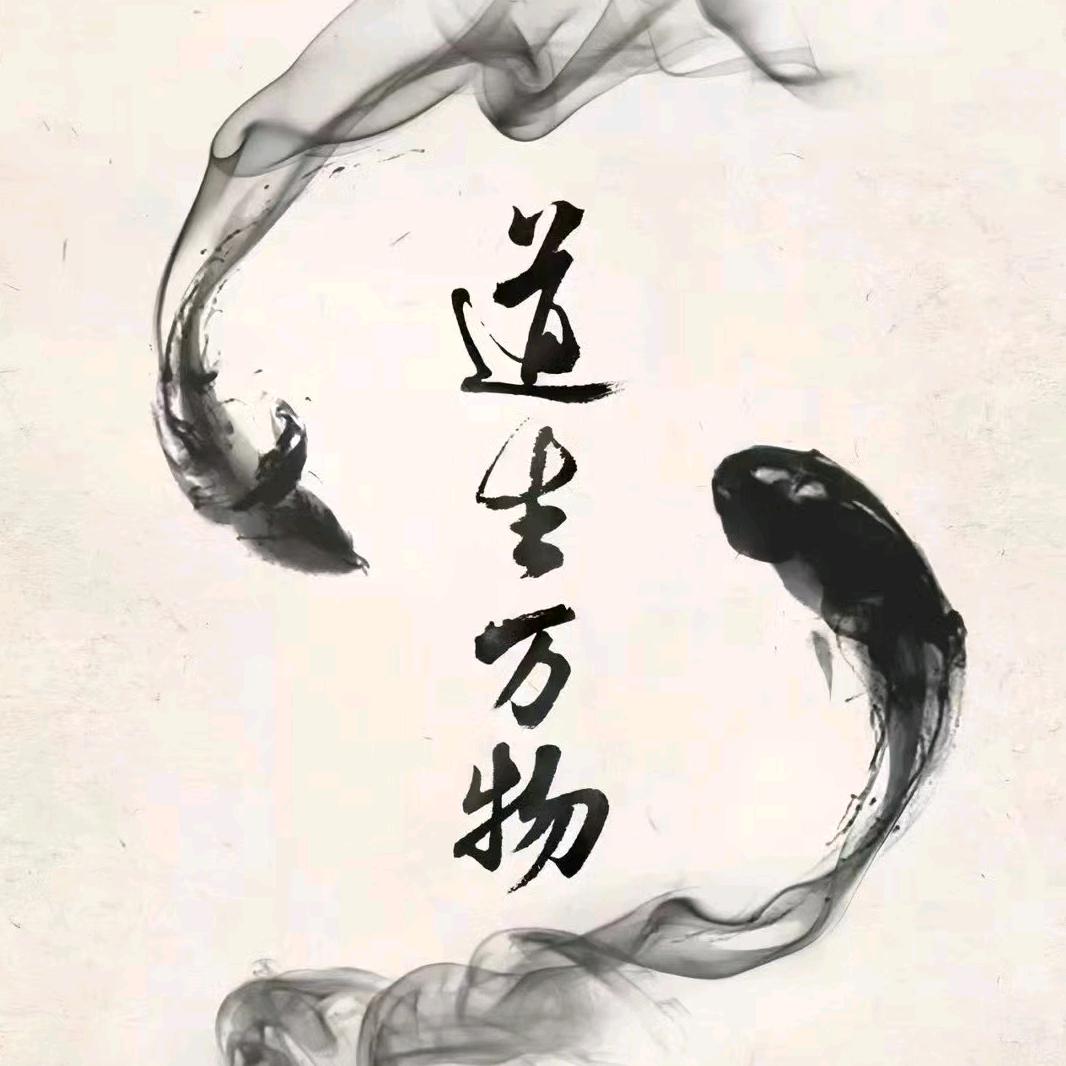 道生万物